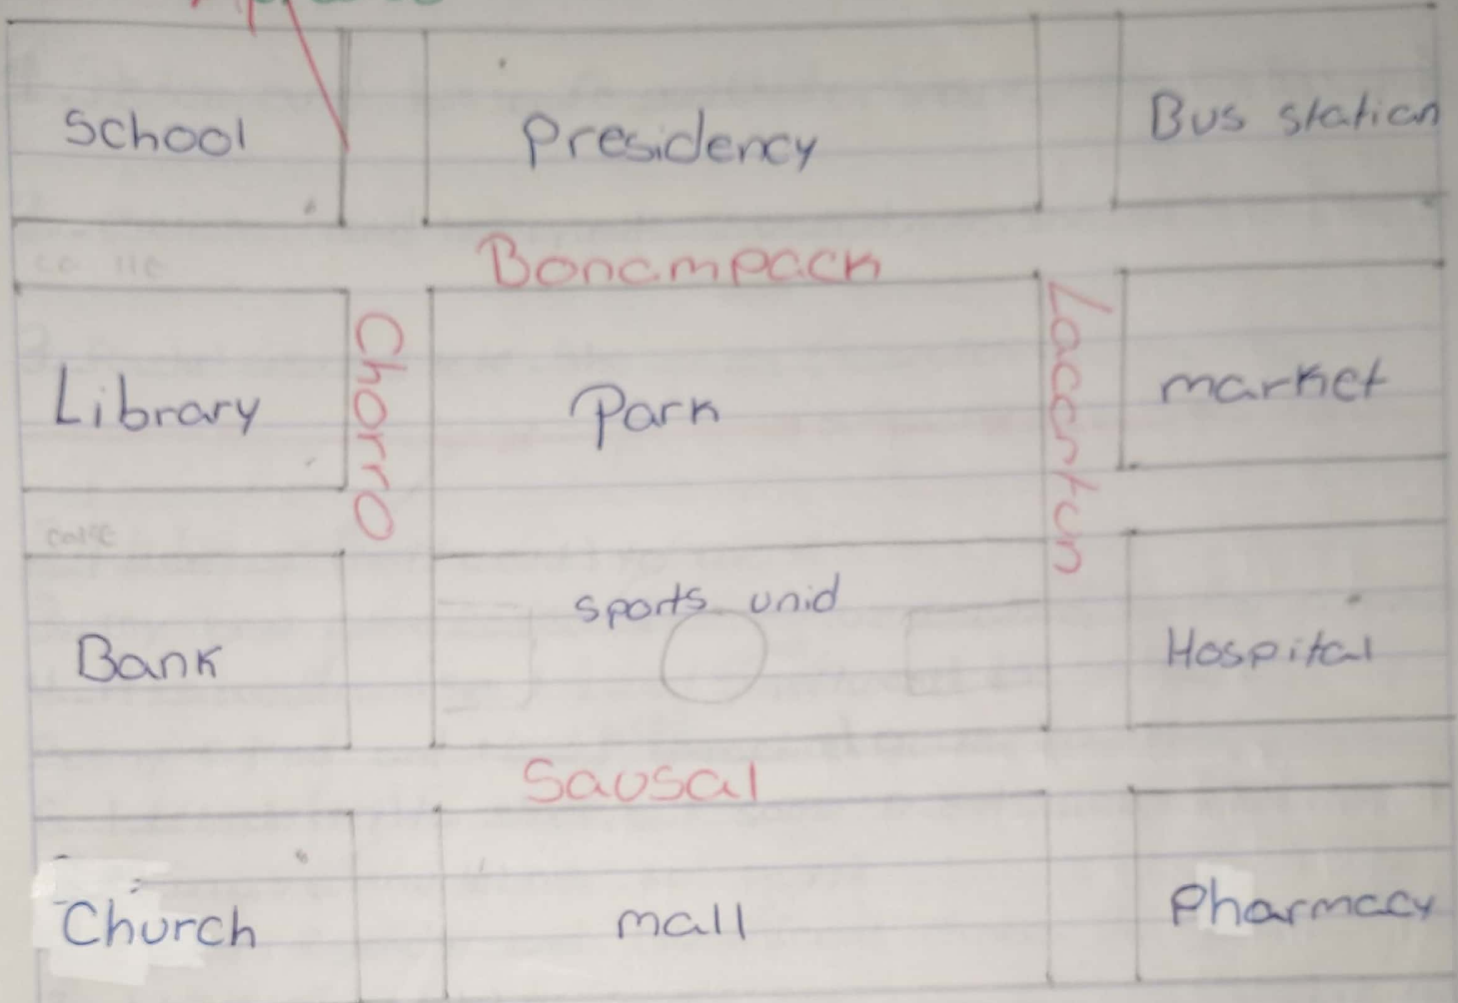 School
Presidency
Bus station
Bonampack
Library
Chorro
Park
Lacantun
market
calle
Bank
sports unid
Hospital
Sausal
Church
mall
Pharmacy